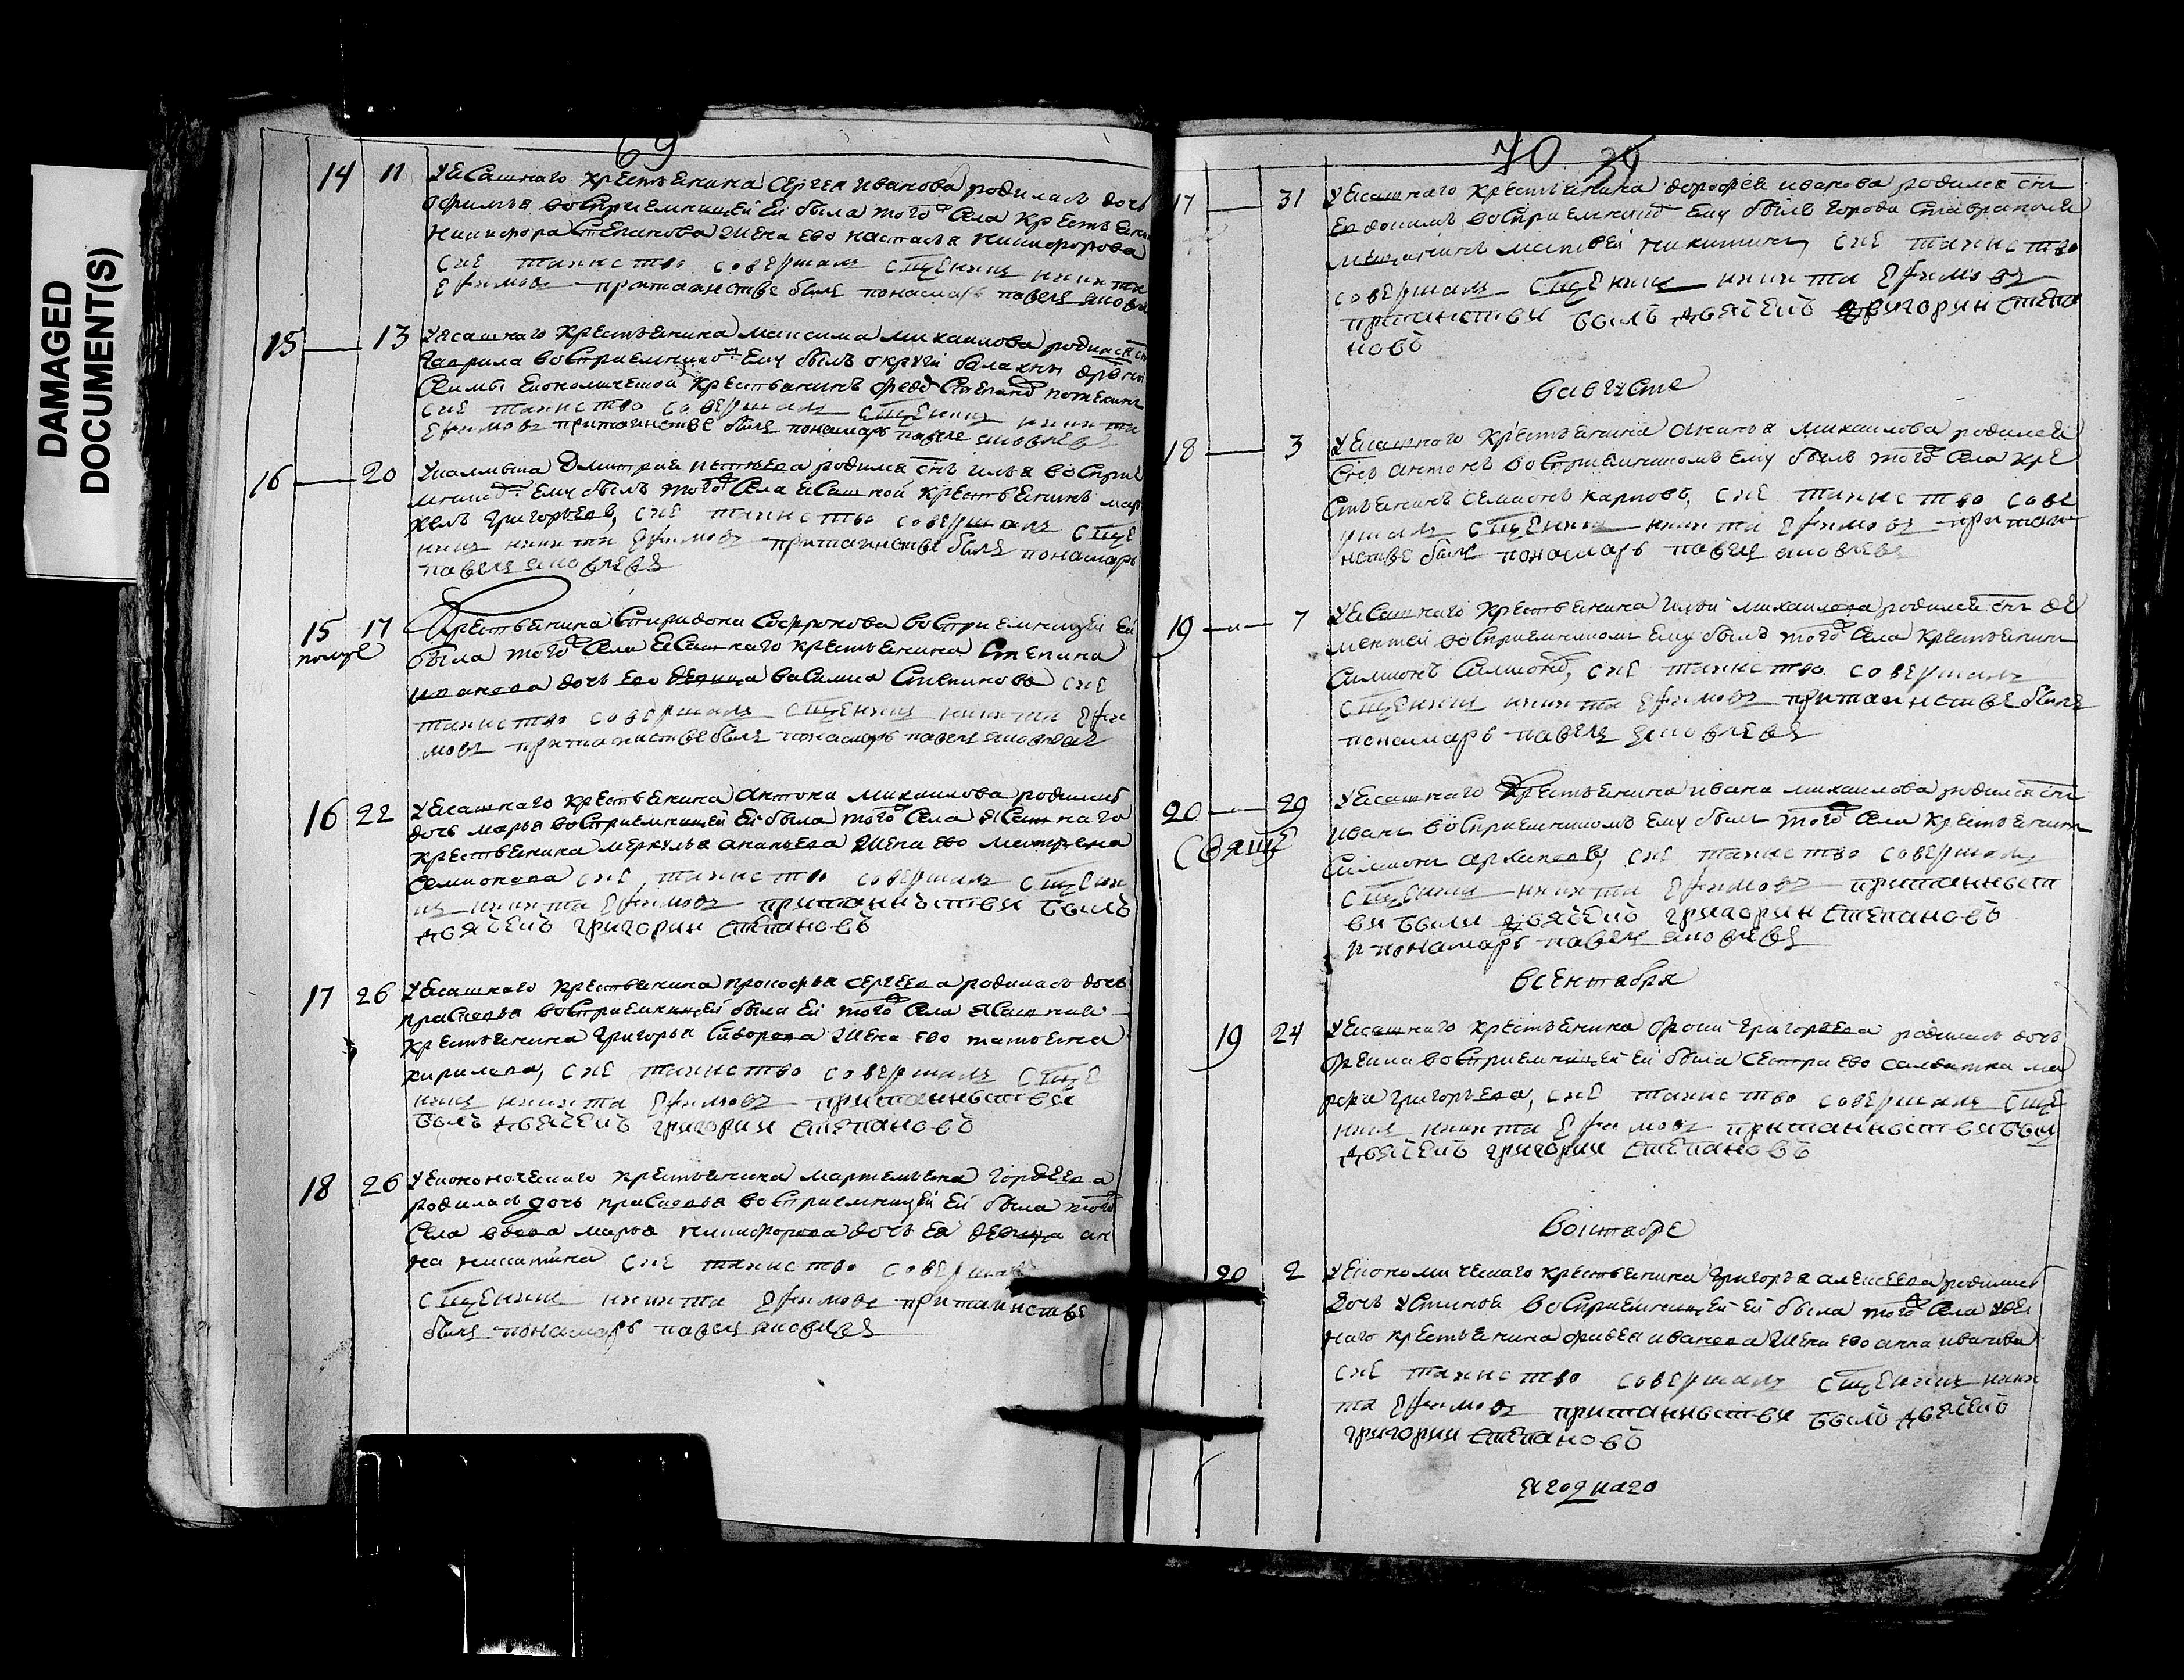 DAMAGED
DOCUMENT(S)
69
14 11 У ЕСашнаго крестьенина Сергея Иванова родилась дочь
офимья восприемницей Ей была того Села крестьенина
Никифора Степанова жена ево настасья никифорова
сие таинство совершалъ сщенникъ никита
Ефимовъ притаинстве былъ понамарь павелъ яковлевъ
15 13 У ясашнаго крестьенина максима михаилова родился снъ
Гаврила восприемнико Ему былъ округи балахны
Економической крестьянинъ Степано потехинъ
сие таинство совершалъ сщенникъ никита
Ефимовъ притаинстве былъ понамарь павелъ яковлевъ
16 20 Дмитрия родился снъ илья воспри
емнико Ему былъ того Села ЕСашной крестьенинъ мар
келъ григорьев, сие таинство совершалъ сще
никъ никита Ефимовъ притаинстве былъ понамарь
павелъ яковлевъ
15 17 Крестьенина Спиридона Софронова восприемницей Ей
полу была того Села ЕСашнаго крестьенина Степана
иванова дочь Ево девица василиса Степанова сие
таинство совершалъ сщенникъ никита Ефи
мовъ притаинстве былъ понамарь павелъ яковлевъ
16 22 У Есашнаго крестьенина антона михаилова родилась
дочь марья восприемницей Ей была того Села ЯСашнаго
крестьенина меркулья ананьева жена ево матрена
Семионова сие таинство совершалъ сщени
къ никита Ефимовъ притаиньстви былъ
дьячекъ григории степановъ
17 26 У Есашнаго крестьенина прокофья сергеева родилась дочь
прасковья восприемницей была Ей того Села ЯСашнаго
крестьенина григорья жена ево татьена
кирилова, сие таинство совершалъ сще
никъ никита Ефимовъ притаиньстви
былъ дьячекъ григории степановъ
18 26 У Економическаго крестьенина мартемьена гордеева
родилась дочь прасковья восприемницей Ей была того
Села вдова марья никифорова дочь Ея девица ан
на никитина сие таинство совершалъ
сщенникъ никита Ефимовъ притаинстве
былъ понамарь павелъ яковлевъ
70 39
17 31 У Есашнаго крестьенина дорофея иванова родился снъ
Евдокимъ восприемнико Ему былъ города Ставраполя
мещанинъ матвей никитинъ, сие таинство
совершалъ сщенникъ никита Ефимовъ
притаинстви былъ дьячекъ григории степа
новъ
вавгусте
18 3 У Есашнаго крестьенина ананья михаилова родился
Снъ антонъ восприемникомъ Ему былъ того Села кре
стьенинъ семионъ карповъ, сие таинство сове
ршалъ сщенникъ никита Ефимовъ притаи
нстве былъ понамарь павелъ яковлевъ
19 7 У ЕСашнаго крестьенина ильи михаилова родился снъ де
ментей восприемникомъ Ему былъ того Села крестьенинъ
Симионъ Симионо, сие таинство совершалъ
сщенникъ никита Ефимовъ притаинстве былъ
понамарь павелъ яковлевъ
20 29 У Есашнаго крестьенина ивана михаилова родился снъ
иванъ восприемникомъ Ему былъ того Села крестьенинъ
Симионъ архипов, сие таинство совершалъ
сщенникъ никита Ефимовъ притаиньст
ви были дьячекъ григории степановъ
и понамарь павелъ яковлевъ
всентабря
19 24 У Есашнаго крестьенина григорьева родилась дочь
восприемницей Ей была сестра ево салдатка ма
григорьева, сие таинство совершалъ сще
никъ никита Ефимовъ притаиньстви былъ
дьячекъ григории степановъ
воктабре
20 2 У Економическаго крестьенина григорья алексеева родилась
дочь устинья восприемницей Ей была того Села
наго крестьенина фадея иванова жена ево анна иванова
сие таинство совершалъ сщенникъ ники
та Ефимовъ притаиньстви былъ дьячекъ
григории степановъ
ягоднаго